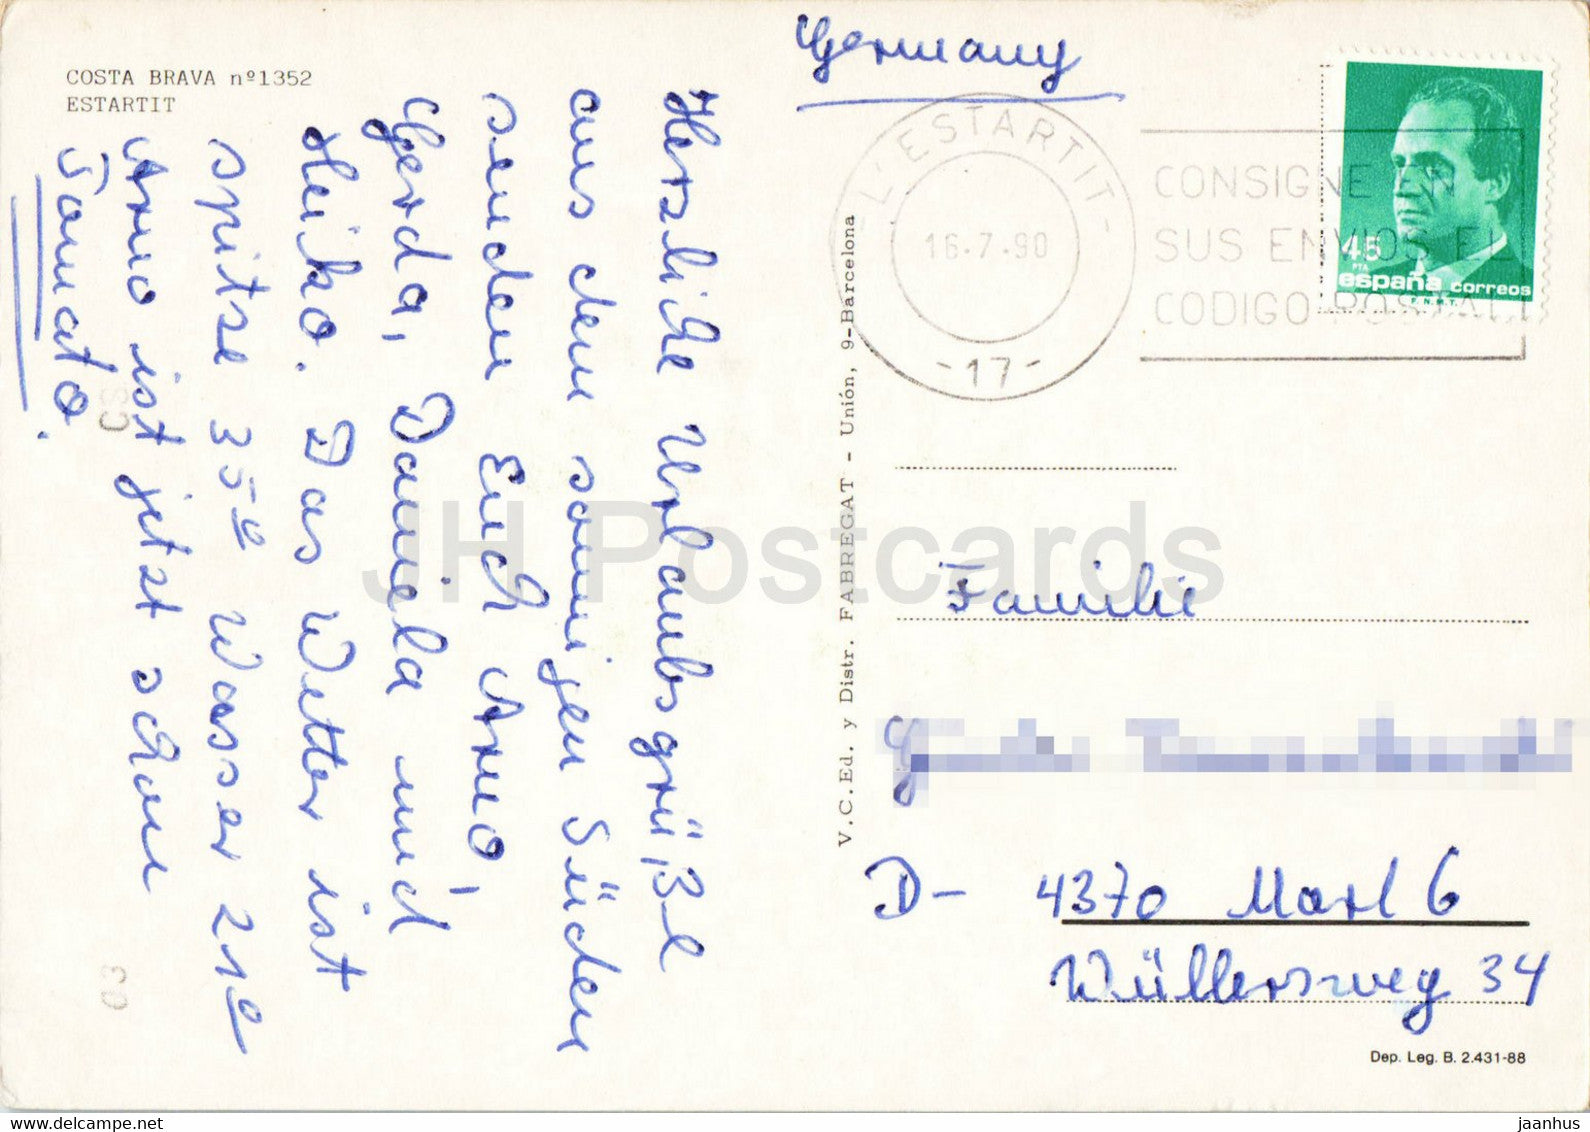 COSTA BRAVA nº1352
ESTARTIT
Herzliche Urlaubsgrüße
aus dem sonnigen Süden
senden Euch Arno,
Gerda, Daniela und
Heiko. Das Wetter ist
spitse 35° Wasser 21°
Arno ist jetzt schon
Tomato.
V.C.Ed. y Distr. FABREGAT - Unión, 9-Barcelona
Germany
L'ESTARTIT
16-7-90
-17-
CONSIGNE EN
SUS ENVIOS EL
CODIGO POSTAL
45
PTA
españa correos
F.N.M.T.
Familie
D- 4370 Marl 6
Wüllersweg 34
Dep. Leg. B. 2.431-88
JH Postcards
www.delcampe.net
jaanhus